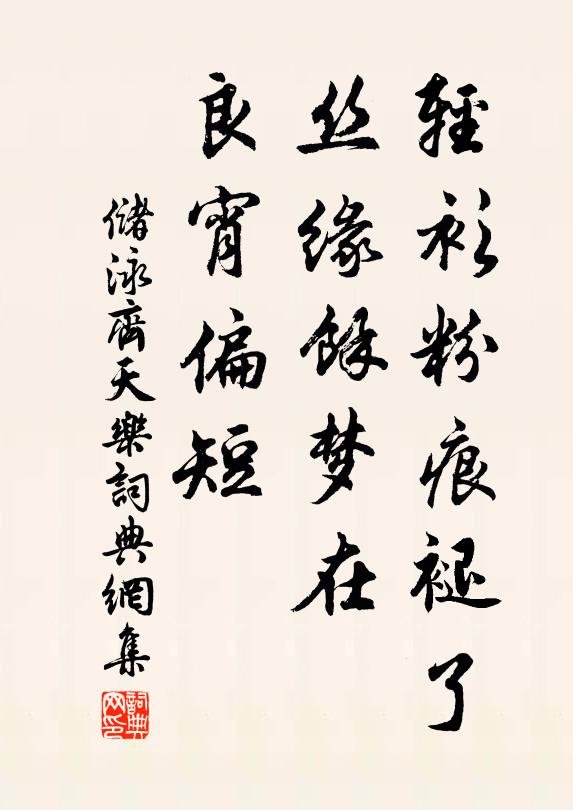 輕衫粉痕褪了
丝缘餘梦在
良宵偏短
儲泳齊天樂詞典網集
詞典网印